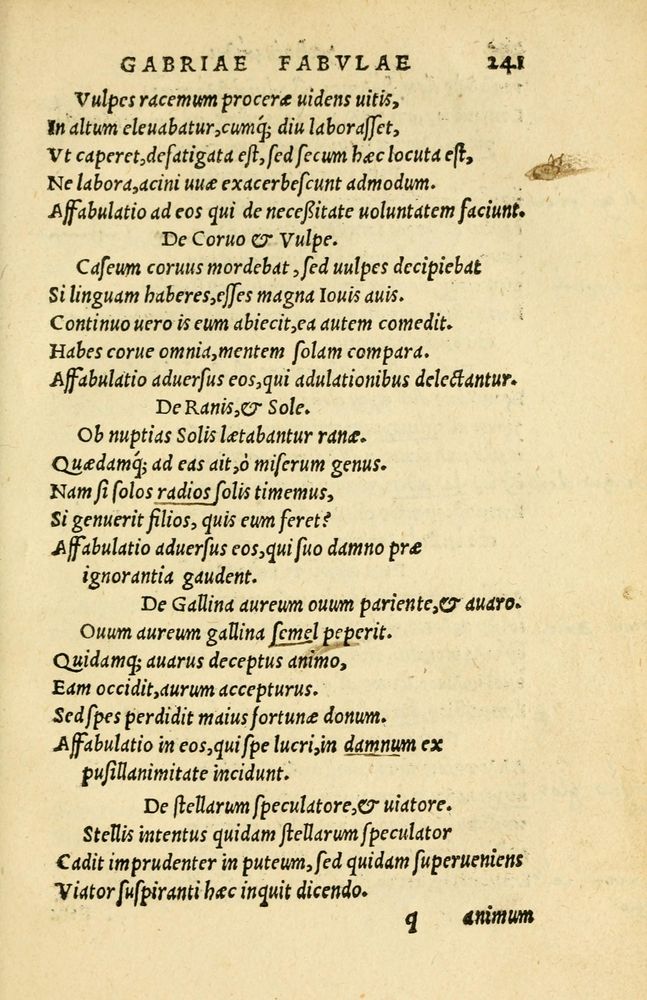 GABRIAE FABVLAE 241
Vulpes racemum proceræ uidens uitis,
In altum eleuabatur, cumq; diu laboraſſet,
Vt caperet, defatigata eſt, ſed ſecum hæc locuta eſt,
Ne labora, acini uuæ exacerbeſcunt admodum.
Affabulatio ad eos qui de neceßitate uoluntatem faciunt.
De Coruo & Vulpe.
Caſeum coruus mordebat, ſed uulpes decipiebat
Si linguam haberes, eſſes magna Iouis auis.
Continuo uero is eum abiecit, ea autem comedit.
Habes corue omnia, mentem ſolam compara.
Affabulatio aduerſus eos, qui adulationibus delectantur.
De Ranis, & Sole.
Ob nuptias Solis lætabantur ranæ.
Quædamq; ad eas ait, ò miſerum genus.
Nam ſi ſolos radios ſolis timemus,
Si genuerit filios, quis eum feret?
Affabulatio aduerſus eos, qui ſuo damno præ
ignorantia gaudent.
De Gallina aureum ouum pariente, & auaro.
Ouum aureum gallina ſemel peperit.
Quidamq; auarus deceptus animo,
Eam occidit, aurum accepturus.
Sed ſpes perdidit maius fortunæ donum.
Affabulatio in eos, qui ſpe lucri, in damnum ex
puſillanimitate incidunt.
De ſtellarum ſpeculatore, & uiatore.
Stellis intentus quidam ſtellarum ſpeculator
Cadit imprudenter in puteum, ſed quidam ſuperueniens
Viator ſuſpiranti hæc inquit dicendo.
q animum